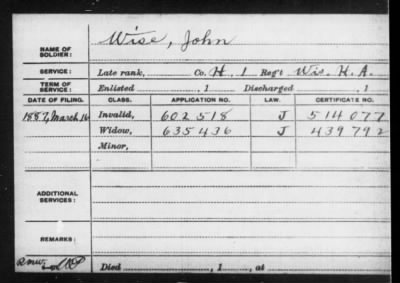 NAME OF SOLDIER: Wise, John
SERVICE: Late rank, Co. H. 1 Reg't Wis. H. A.
TERM OF SERVICE: Enlisted , 1 Discharged , 1
DATE OF FILING. CLASS. APPLICATION NO. LAW. CERTIFICATE NO.
1887, March 16 Invalid, 602518 J 514077
Widow, 635436 J 439792
Minor,
ADDITIONAL SERVICES:
REMARKS:
Died , 1 , at